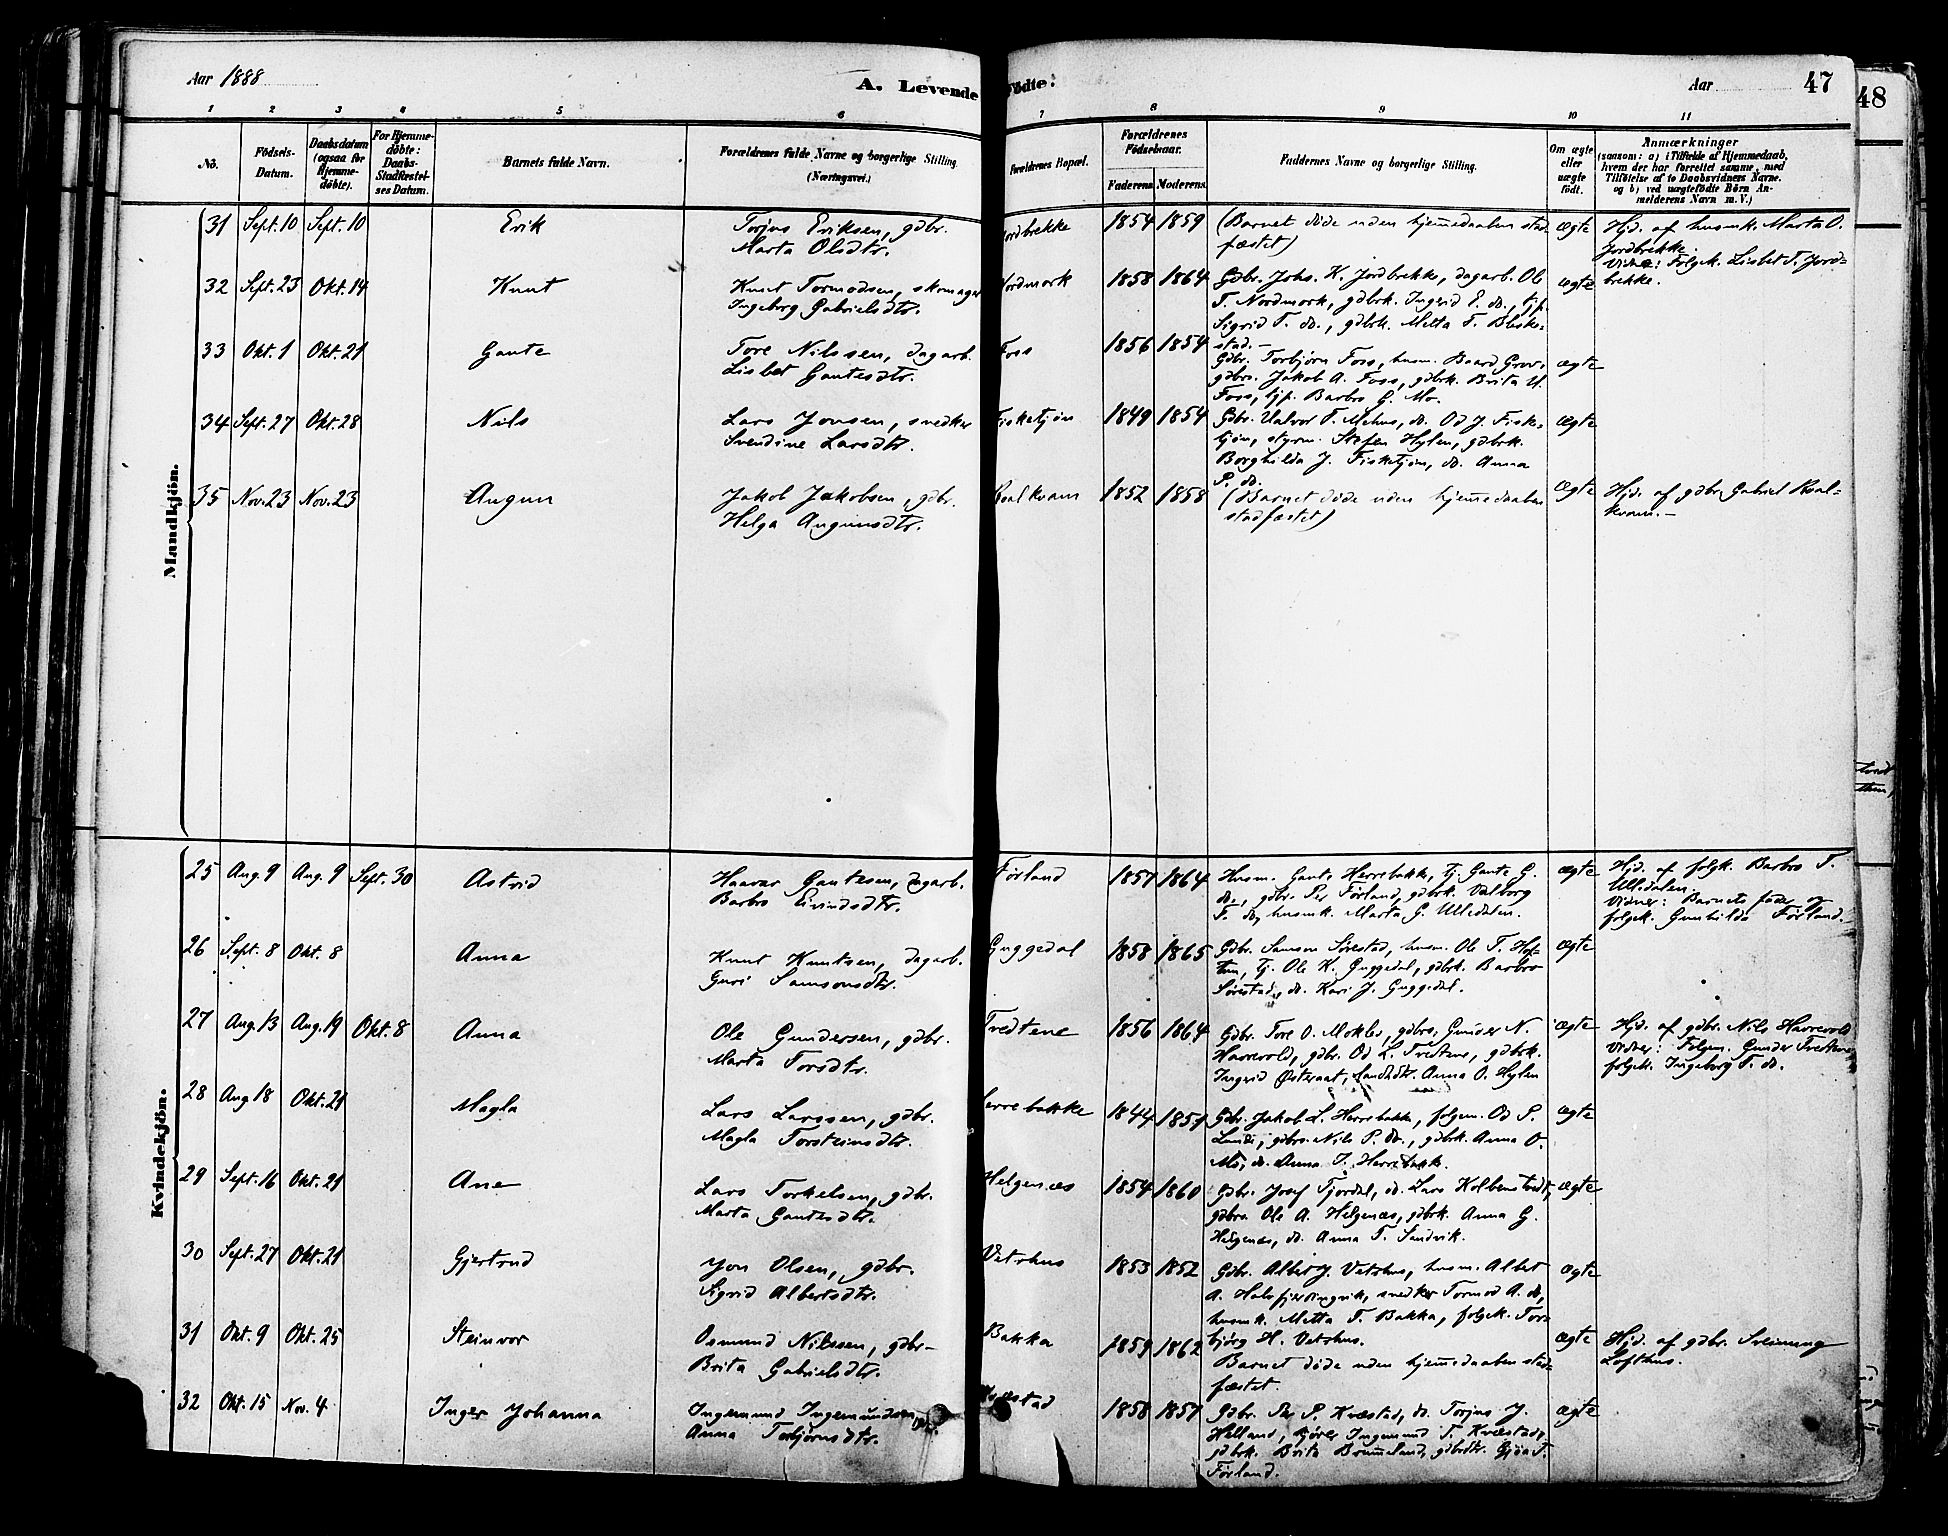 Aar 1888 A. Levende Fødte. Aar 47
48
1 2 3 4 5 6 7 8 9 10 11
No.
Fødsels-
Datum.
Daabsdatum
(ogsaa for
Hjemme-
døbte).
For Hjemme-
døbte:
Daabs-
Stadfæstel-
ses Datum.
Barnets fulde Navn.
Forældrenes fulde Navne og borgerlige Stilling
(Næringsvei.)
Forældrenes Bopæl.
Forældrenes
Fødselsaar.
Faderens Moderens
Faddernes Navne og borgerlige Stilling.
Om ægte
eller
uægte
født.
Anmærkninger
(saasom: a) i Tilfælde af Hjemmedaab,
hvem der har forrettet samme, med
Tilføielse af to Daabsvidners Navne.
og b) ved uægtefødte Børn An-
melderens Navn m. V.)
Mandkjön.
31 Sept. 10 Sept. 10 Erik
Torjus Eriksen, gdbr.
Marta Olsdtr.
Jordbrekke 1854 1859
(Barnet døde uden hjemmedaaben stad-
fæstet)
ægte
Hjd. af husmk. Marta O.
Jordbrekke.
Vidne: Følgek. Lisbet T. Jord-
brekke.
32 Sept. 23 Okt. 14 Knut
Knut Tormodsen, skomager
Ingeborg Gabrielsdtr.
Nordmork 1858 1864
Gdbr. Johs. K. Jordbrekke, dagarb. Ole
T. Nordmork, gdbrk. Ingrid E. do., tjp.
Sigrid T. do., gdbrk. Metta T. Bleske-
stad.
ægte
33 Okt. 1 Okt. 21 Gaute
Tore Nilssen, dagarb.
Lisbet Gautesdtr.
Foss 1856 1854
Gdbr. Torbjørn Foss, husm. Baard Grov,
gdbrs. Jakob A. Foss, gdbrk. Brita
Foss, tjp. Barbro G. Mo.
ægte
34 Sept. 27 Okt. 28 Nils
Lars Jonsen, snedker
Svendine Larsdtr.
Fisketjøn 1849 1854
Gdbr. Halvor T. Mehus, do. Od J. Fiske-
tjøn, styrm. Stefen Hylen, gdbrk.
Borghilda J. Fisketjøn, do. Anna
P. do.
ægte
35 Nov. 23 Nov. 23 Augun
Jakob Jakobsen, gdbr.
Helga Augunsdtr.
Roalkvam 1852 1858
(Barnet døde uden hjemmedaaben
stadfæstet)
ægte
Hjd. af gdbr. Gabriel Roal-
kvam.
Kvindekjön.
25 Aug. 9 Aug. 9 Sept. 30 Astrid
Haavar Gautesen, dagarb.
Barbro Eivindsdtr.
Førland 1857 1864
Husm. Gaute Herrebakke, tj. Gaute G.
do., gdbr. Per Førland, gdbrk. Valborg
T. do, husmk. Marta G. Ulledalen.
ægte
Hjd. af følgk. Barbro T.
Ulledalen.
Vidner: Barnets fader og
følgek. Gunhilda Førland.
26 Sept. 8 Okt. 8 Anna
Knut Knutsen, dagarb.
Guri Samsonsdtr.
Guggedal 1858 1865
Gdbr. Samson Sørestad, husm. Ole T. Hof-
tun, tj. Ole K. Guggedal, gdbrk. Barbro
Sørestad, do. Kari J. Guggedal.
ægte
27 Aug. 13 Aug. 19 Okt. 8 Anna
Ole Gundersen, gdbr.
Marta Torsdtr.
Tredtene 1856 1864
Gdbr. Tore O. Mokleb, gdbrs. Gunder N.
Havrevold, gdbr. Od L. Tredtene, gdbrk.
Ingrid Østeraat, Anna O. Hylen
ægte
Hjd. af gdbr. Nils Havrevold
Vidner: Følgem. Gunder Tredtene,
følgek. Ingeborg T. do.
28 Aug 18 Okt. 21 Magla
Lars Larssen, gdbr.
Magla Torsteinsdtr.
Herrebakke 1844 1857
Gdbr. Jakob L. Herrebakke, følgem. Od P.
Lunde, gdbrs. Nils P. do., gdbrk. Anna O.
Mo, do. Anna T. Herrebakk.
ægte
29 Sept. 16 Okt. 21 Ane
Lars Torkelsen, gdbr.
Marta Gautesdtr.
Helgenæs 1854 1860
Gdbr. Josef Fjordal, do. Lars Kolbenstvedt,
gdbrs. Ole A. Helgenæs, gdbrk. Anna G.
Helgenæs, do. Anna T. Sandvik.
ægte
30 Sept. 27 Okt. 21 Gjertrud
Jon Olsen, gdbr.
Sigrid Albertsdtr.
Vetrhus 1853 1852
Gdbr. Albert J. Vetrhus, husm. Albet
A. Halsfjerdingvik, snedker Tormod A. do,
husmk. Metta T. Bakka, følgek. Tor-
bjørg H. Vetrhus.
ægte
31 Okt. 9 Okt. 25 Steinvor
Osmund Nilssen, gdbr.
Brita Gabrielsdtr.
Bakka 1859 1862
Barnet døde uden hjemmedaaben stad-
fæstet.
ægte
Hjd. af gdbr. Sveinung
Lofthus.
32 Okt. 15 Nov. 4 Inger Johanna
Ingemund Ingemundsen,
Anna Torbjørnsdtr.
1858 1857
Gdbr. Per P. Kvæstad, do. Torjus J.
Helland, Ingemund T. Kvæstad,
gdbrk. Brita Brommeland, gdbrdtr. Gjøa T.
Førland.
ægte